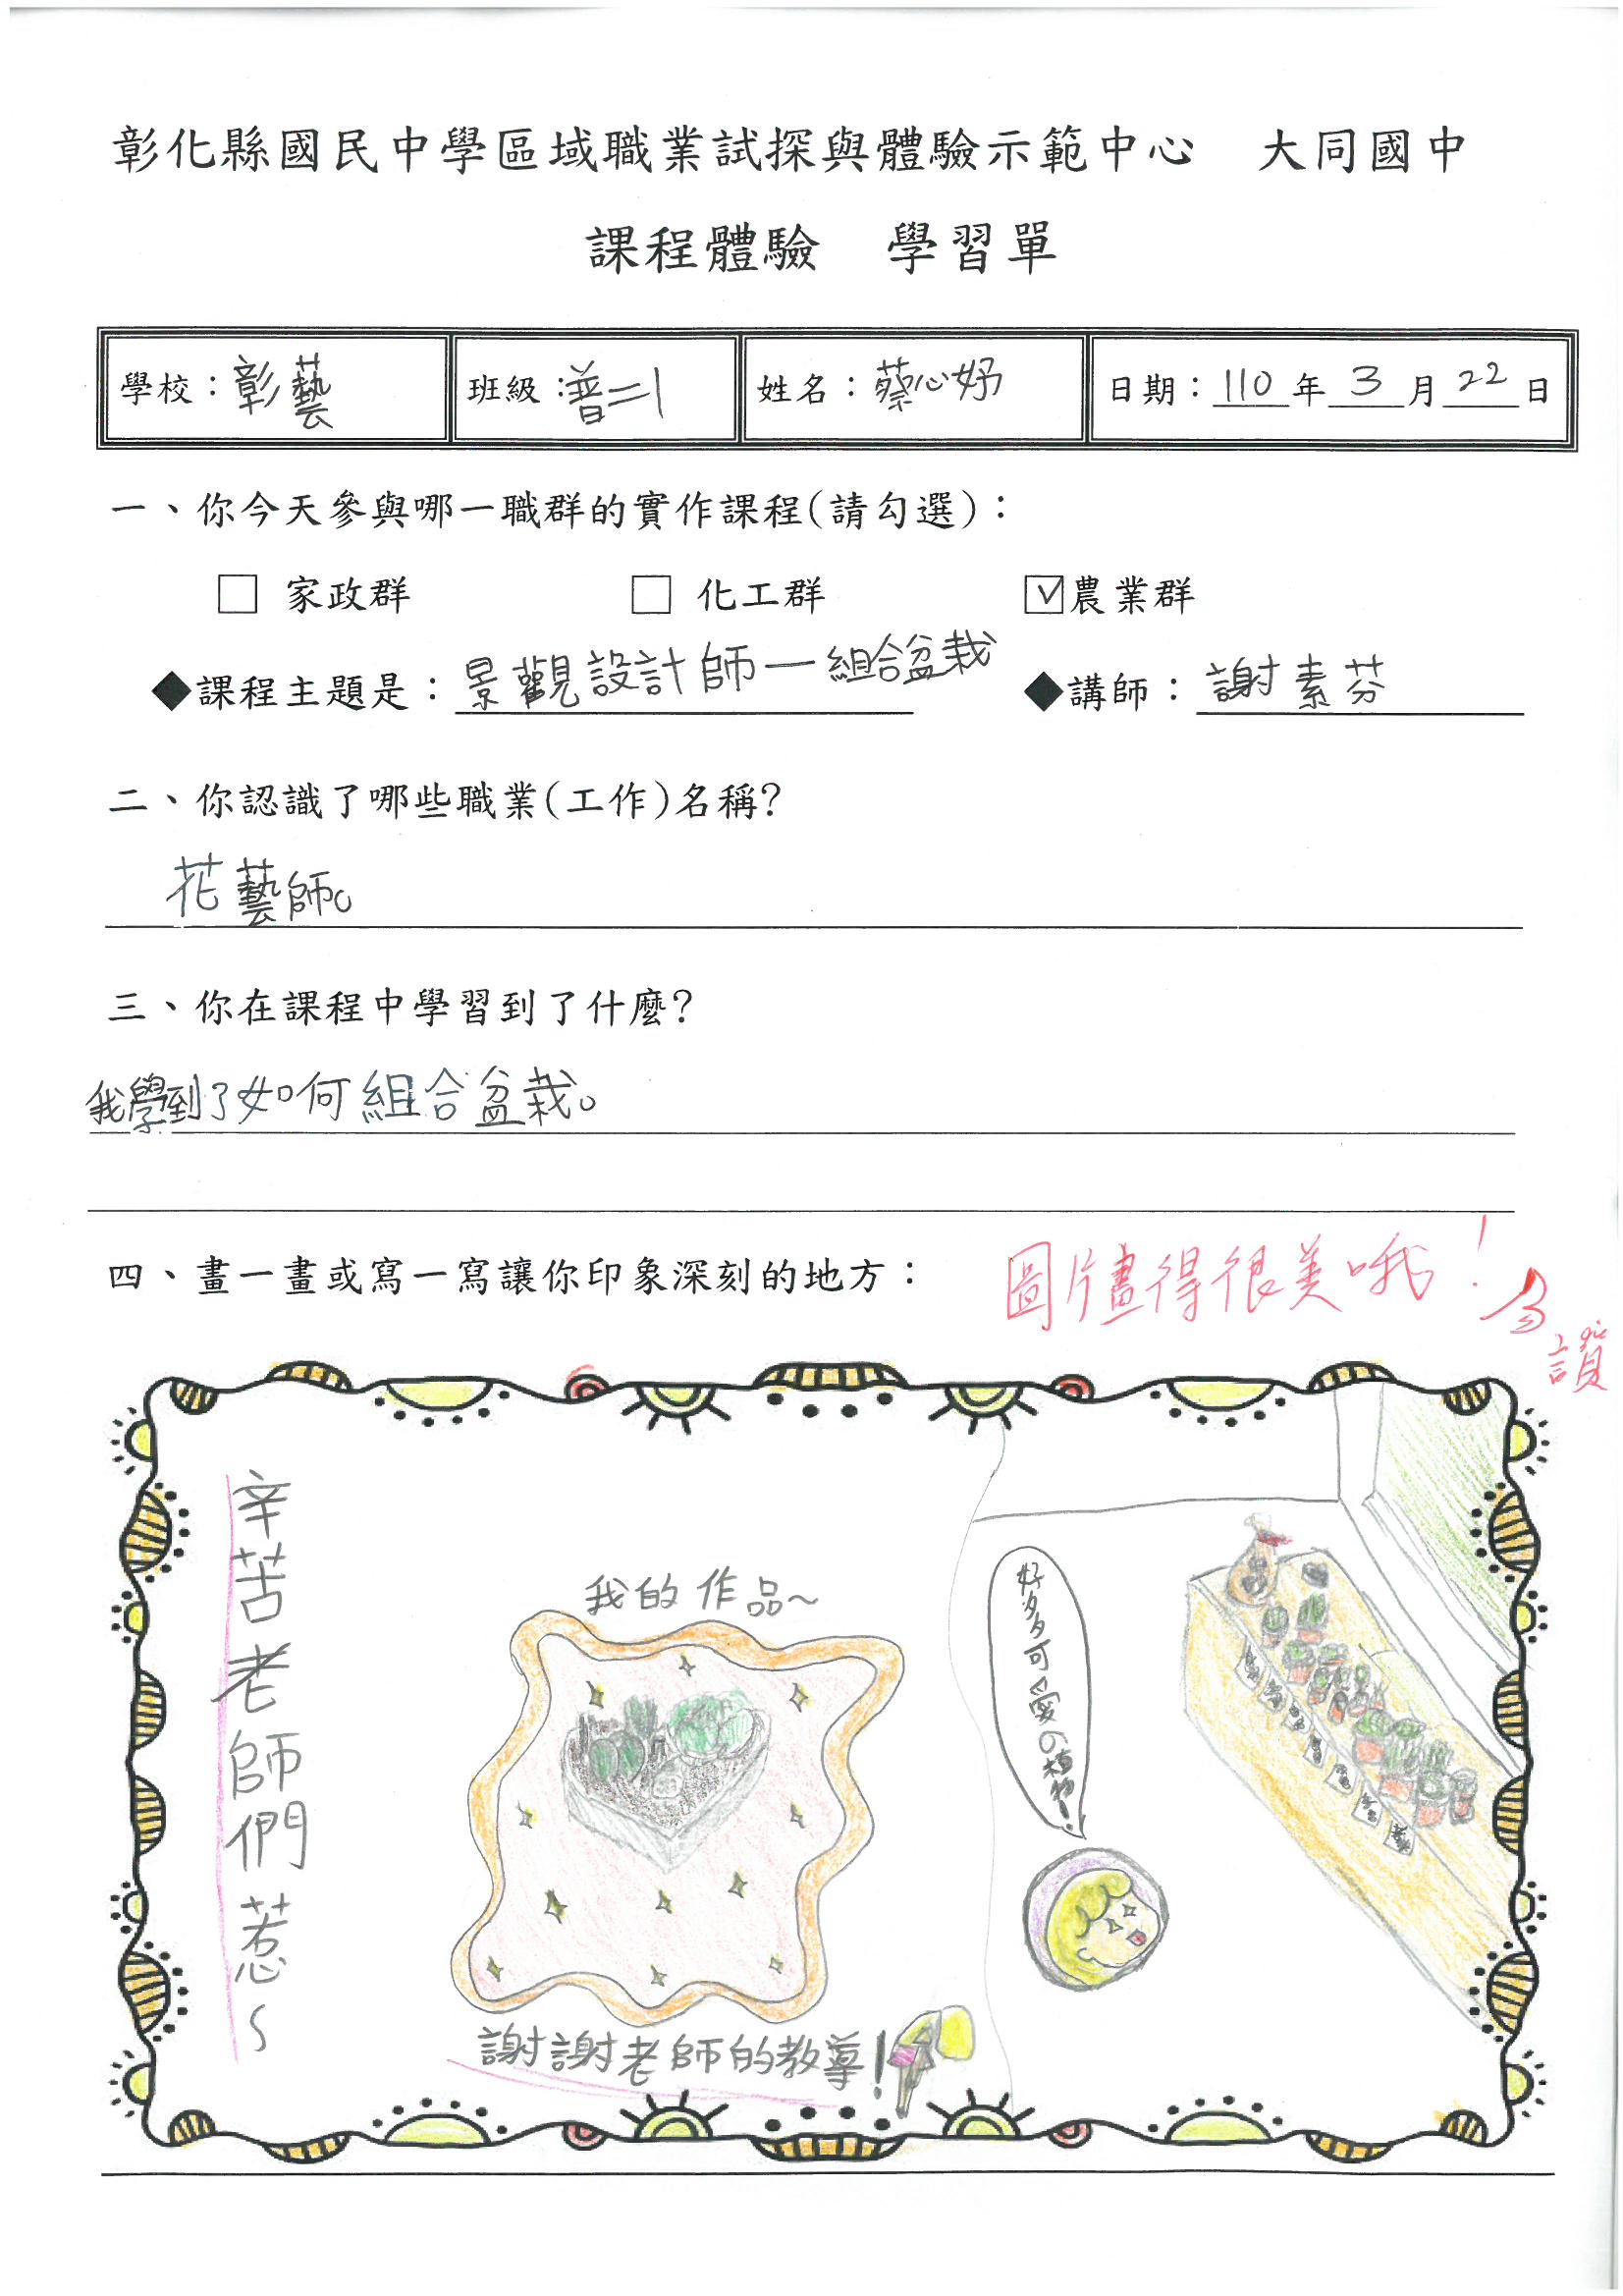 彰化縣國民中學區域職業試探與體驗示範中心 大同國中
課程體驗 學習單
學校：彰藝 班級：普二1 姓名：蔡心妤 日期：110年3月22日
一、你今天參與哪一職群的實作課程(請勾選)：
□ 家政群 □ 化工群 ☑農業群
◆課程主題是：景觀設計師—組合盆栽 ◆講師：謝素芬
二、你認識了哪些職業(工作)名稱?
花藝師。
三、你在課程中學習到了什麼?
我學到了如何組合盆栽。
四、畫一畫或寫一寫讓你印象深刻的地方：
圖片畫得很美哦！
讚
辛苦老師們惹~
我的作品~
謝謝老師的教導！
好多可愛の植物！